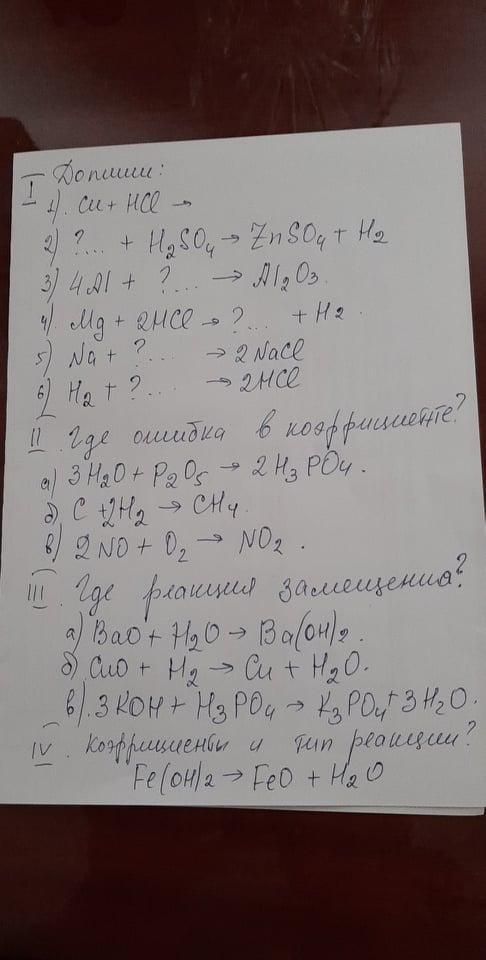 I Допиши:
1). Cu + HCl →
2) ?... + H₂SO₄ → ZnSO₄ + H₂
3) 4Al + ?... → Al₂O₃.
4) Mg + 2HCl → ?... + H₂.
5) Na + ?... → 2NaCl
6) H₂ + ?... → 2HCl
II Где ошибка в коэффициенте?
а) 3H₂O + P₂O₅ → 2H₃PO₄.
б) C + 2H₂ → CH₄.
в) 2NO + O₂ → NO₂.
III. Где реакция замещения?
а) BaO + H₂O → Ba(OH)₂.
б) CuO + H₂ → Cu + H₂O.
в). 3KOH + H₃PO₄ → K₃PO₄ + 3H₂O.
IV. Коэффициенты и тип реакции?
Fe(OH)₂ → FeO + H₂O